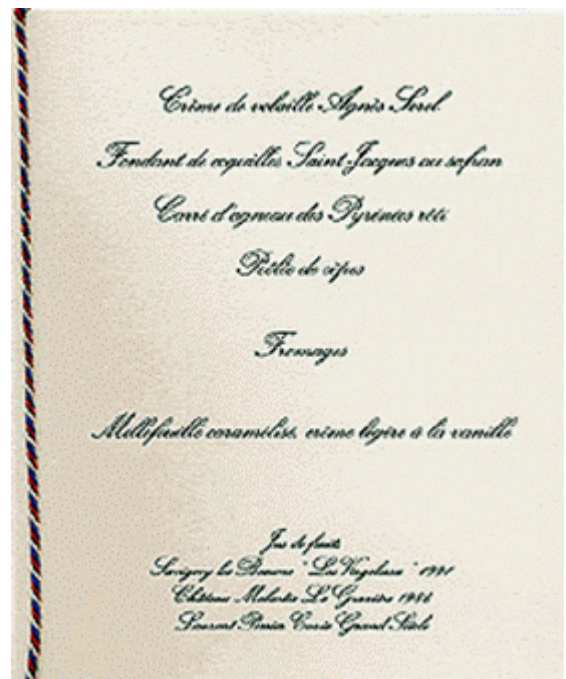 Crème de volaille Agnès Sorel
Fondant de coquilles Saint-Jacques au safran
Carré d'agneau des Pyrénées rôti
Poêlée de cèpes
Fromages
Millefeuille caramélisé, crème légère à la vanille
Jus de fruits
Savigny les Beaune " " 1991
Château Malartic La Gravière 1986
Laurent Perrier Cuvée Grand Siècle